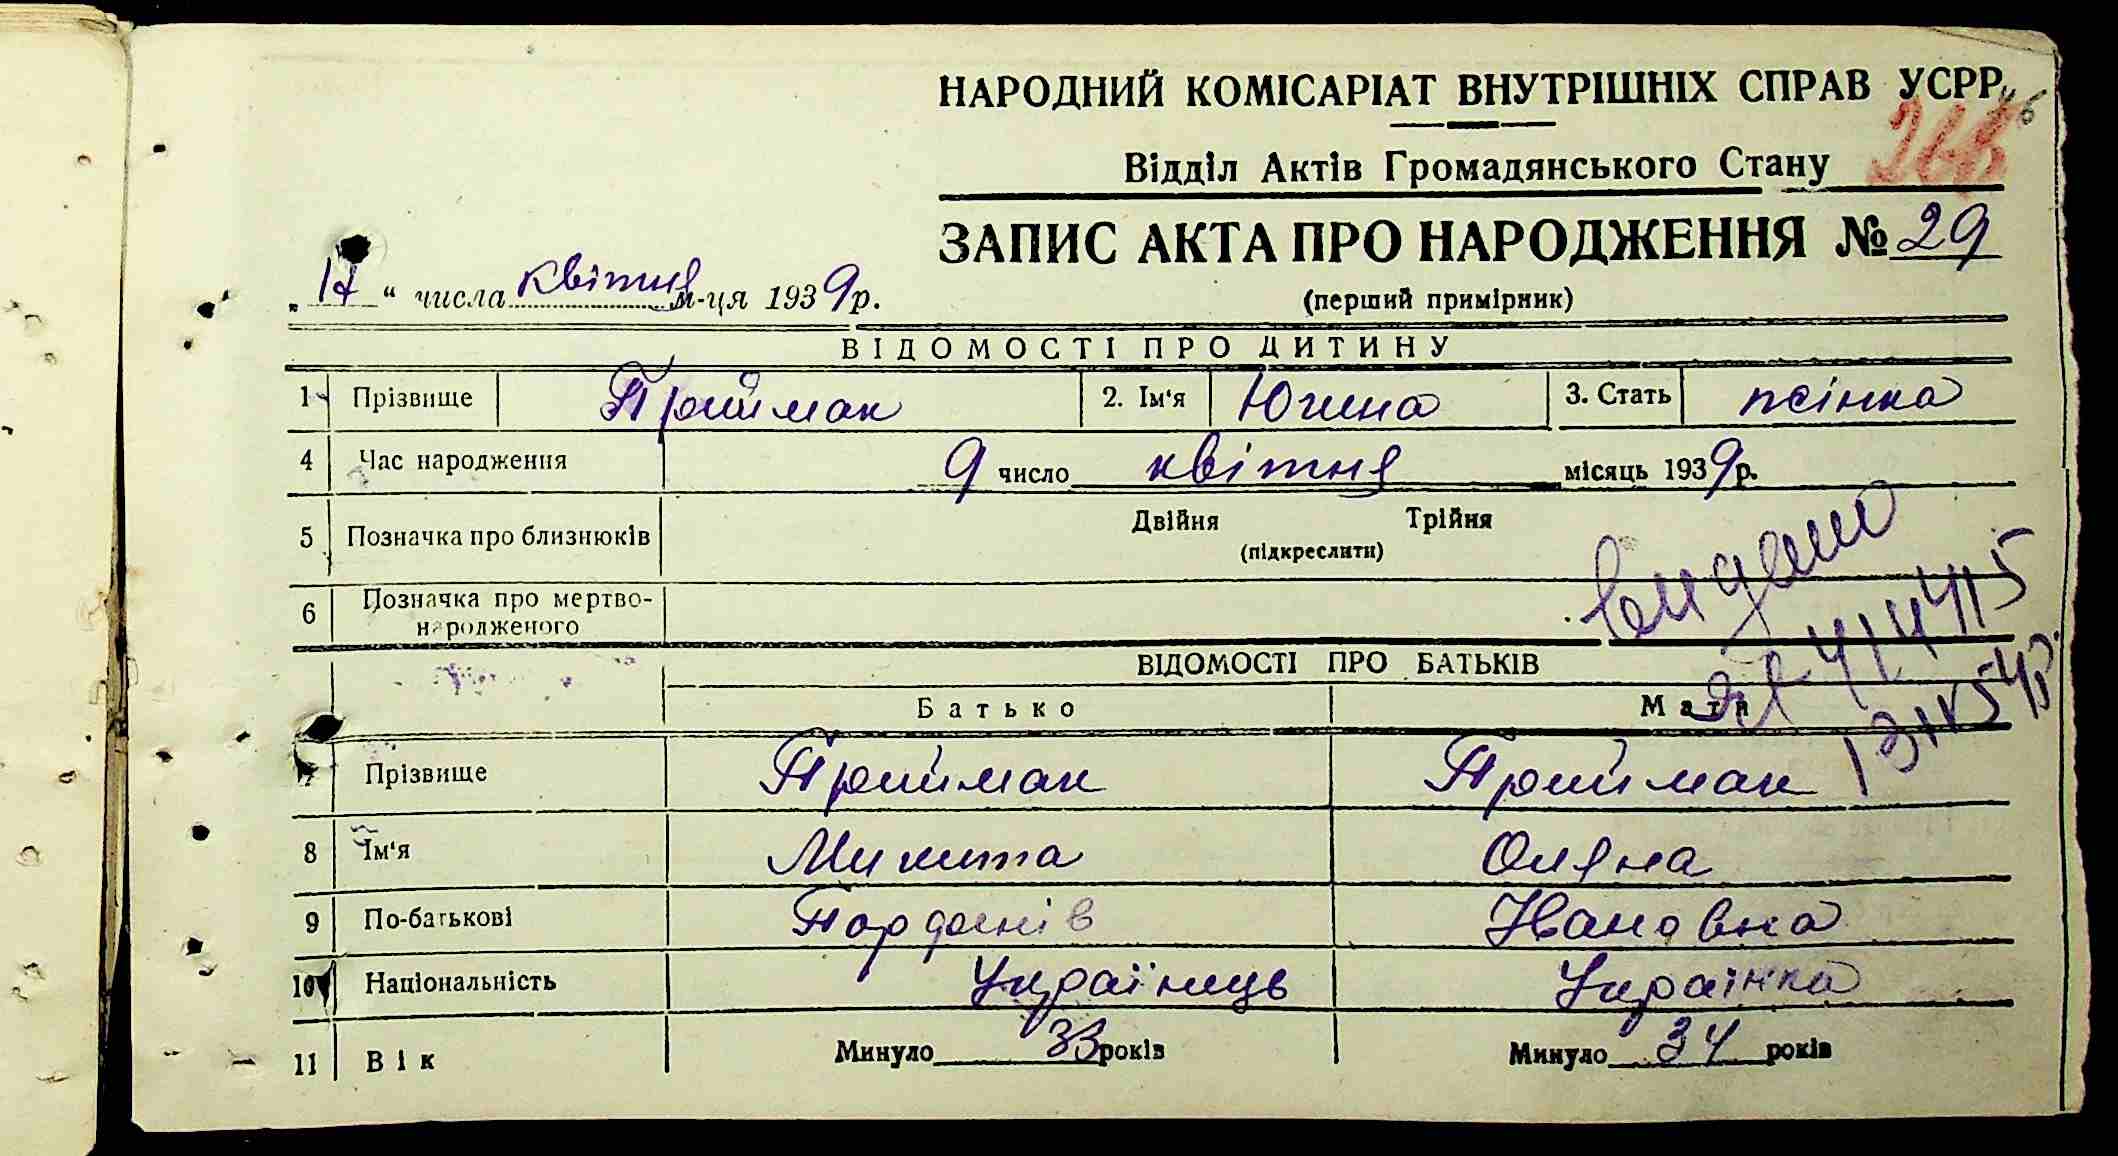 НАРОДНИЙ КОМІСАРІАТ ВНУТРІШНІХ СПРАВ УСРР
Відділ Актів Громадянського Стану
ЗАПИС АКТА ПРО НАРОДЖЕННЯ № 29
„17“ числа квітня м-ця 1939р.
(перший примірник)
ВІДОМОСТІ ПРО ДИТИНУ
1 Прізвище Приймак 2. Ім'я Югина 3. Стать жінка
4 Час народження 9 число квітня місяць 1939р.
5 Позначка про близнюків Двійня Трійня
(підкреслити)
видано
6 Позначка про мертво-
народженого
ВІДОМОСТІ ПРО БАТЬКІВ
Батько Мати
7 Прізвище Приймак Приймак
8 Ім'я Микита Оляна
9 По-батькові Йвановна
10 Національність Українець Українка
11 Вік Минуло 33 років Минуло 34 років